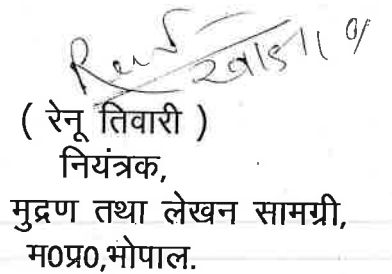 ( रेनू तिवारी )
नियंत्रक,
मुद्रण तथा लेखन सामग्री,
म0प्र0,भोपाल.